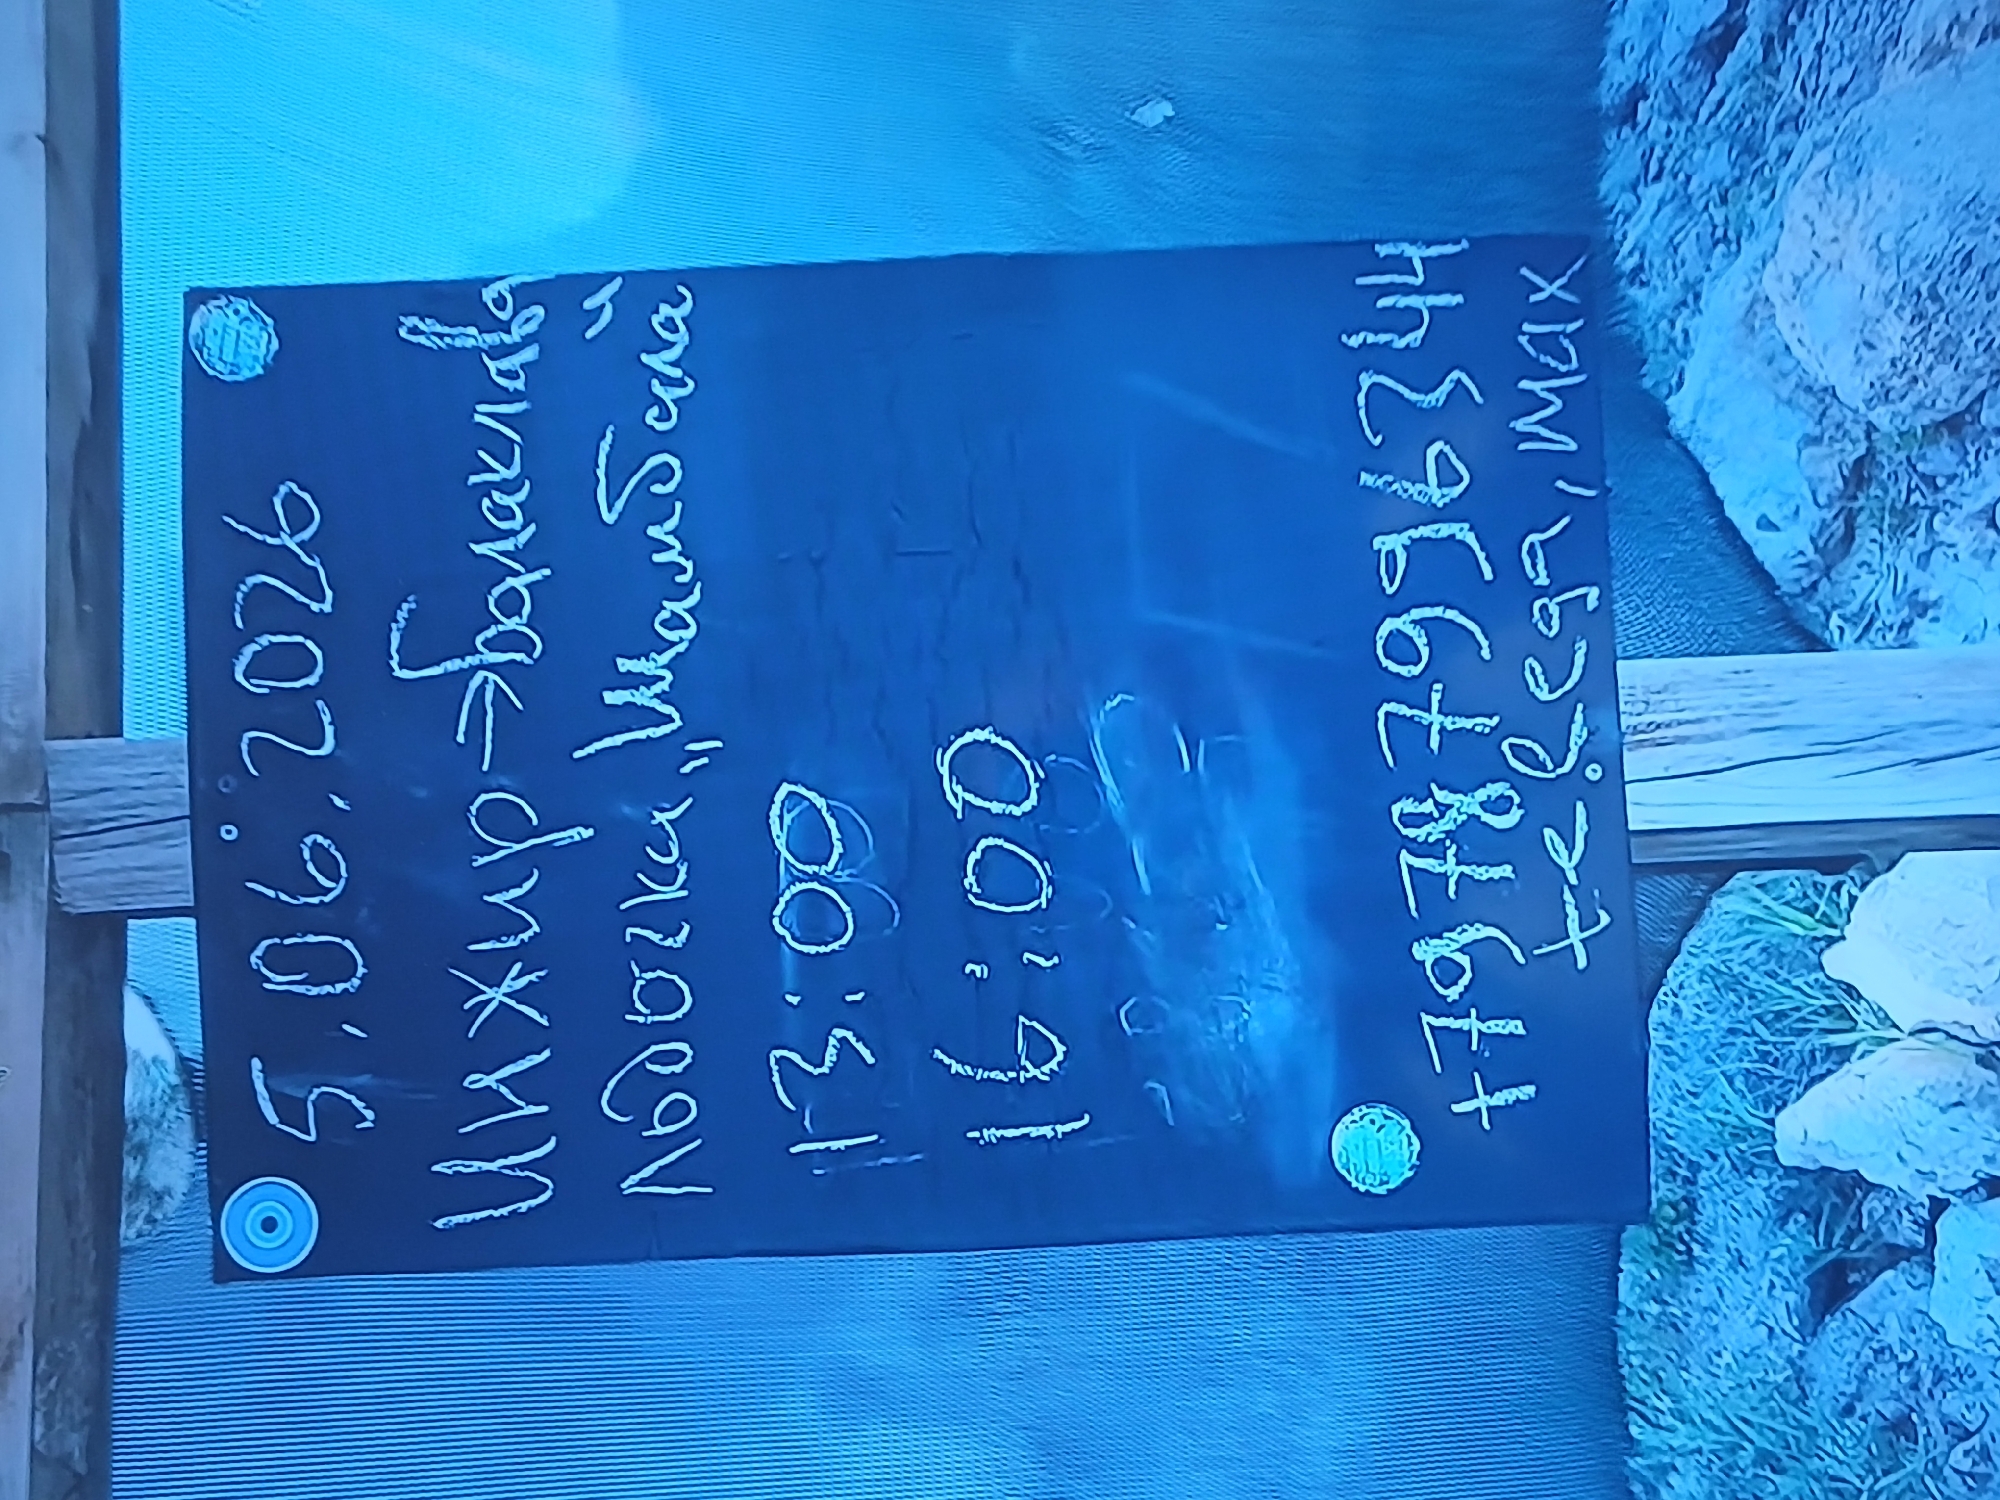 5.06.2026
Инжир→Балаклава
Лодочка „Шамбала"
13:00
16:00
+79787996344
телега, Max